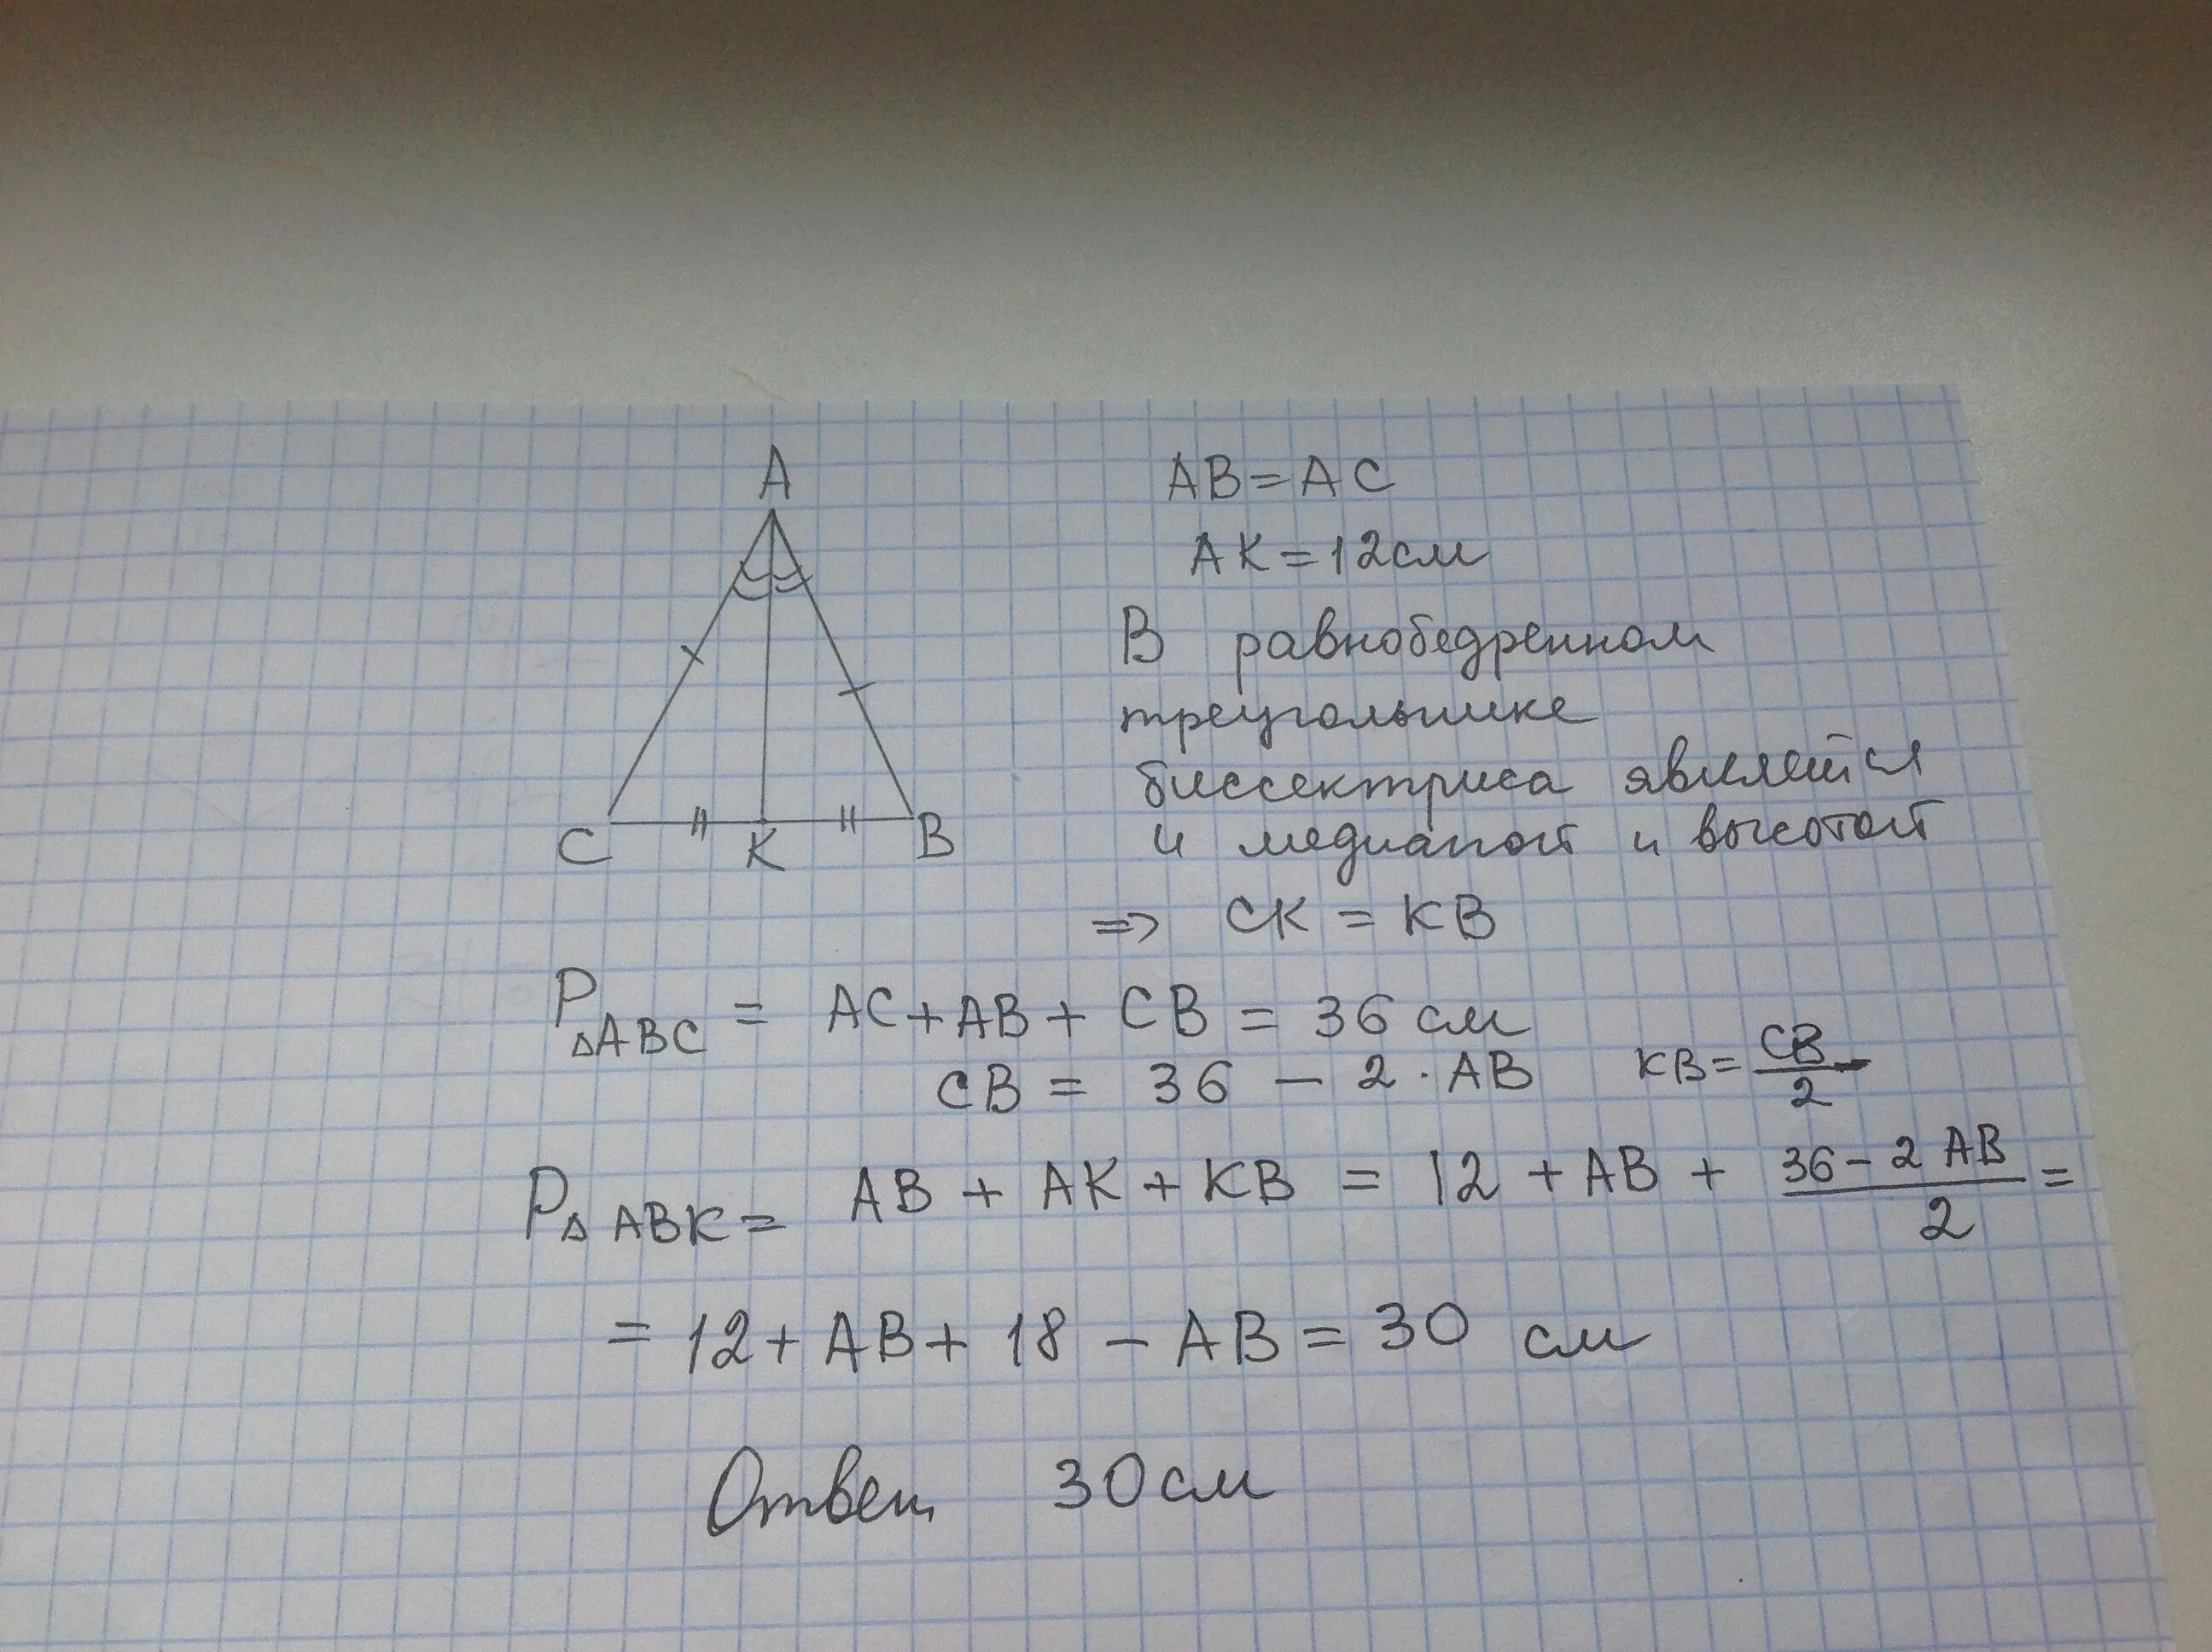 A
C K B
AB = AC
AK = 12 см
В равнобедренном
треугольнике
биссектриса является
и медианой и высотой
=> CK = KB
P△ABC = AC + AB + CB = 36 см
CB = 36 - 2 · AB KB = CB/2
P△ABK = AB + AK + KB = 12 + AB + (36 - 2 AB)/2 =
= 12 + AB + 18 - AB = 30 см
Ответ 30 см